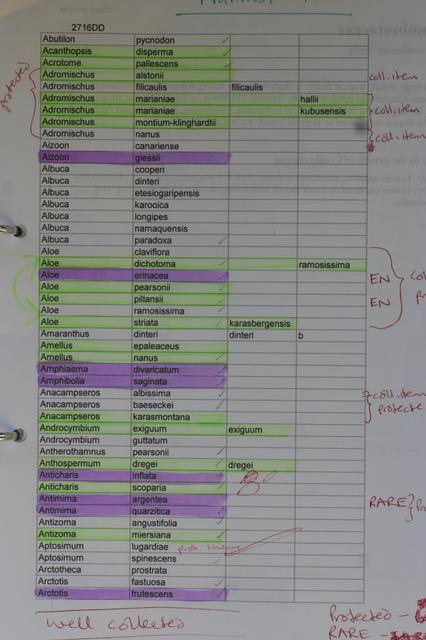 2716DD
Abutilon pycnodon
Acanthopsis disperma
Acrotome pallescens
Adromischus alstonii coll.item
Adromischus filicaulis filicaulis
protected Adromischus marianiae hallii
Adromischus marianiae kubusensis coll.item
Adromischus montium-klinghardtii
Adromischus nanus coll.item
Aizoon canariense
Aizoon giessii
Albuca cooperi
Albuca dinteri
Albuca etesiogaripensis
Albuca karooica
Albuca longipes
Albuca namaquensis
Albuca paradoxa
Aloe claviflora
Aloe dichotoma ramosissima
Aloe erinacea EN
Aloe pearsonii
Aloe pillansii EN
Aloe ramosissima
Aloe striata karasbergensis
Amaranthus dinteri dinteri b
Amellus epaleaceus
Amellus nanus
Amphiasma divaricatum
Amphibolia saginata
Anacampseros albissima coll.item
Anacampseros baeseckei protecte
Anacampseros karasmontana
Androcymbium exiguum exiguum
Androcymbium guttatum
Antherothamnus pearsonii
Anthospermum dregei dregei
Anticharis inflata
Anticharis scoparia
Antimima argentea RARE
Antimima quarzitica
Antizoma angustifolia
Antizoma miersiana
Aptosimum lugardiae prob.
Aptosimum spinescens
Arctotheca prostrata
Arctotis fastuosa
Arctotis frutescens
well collected
Protected -
RARE -